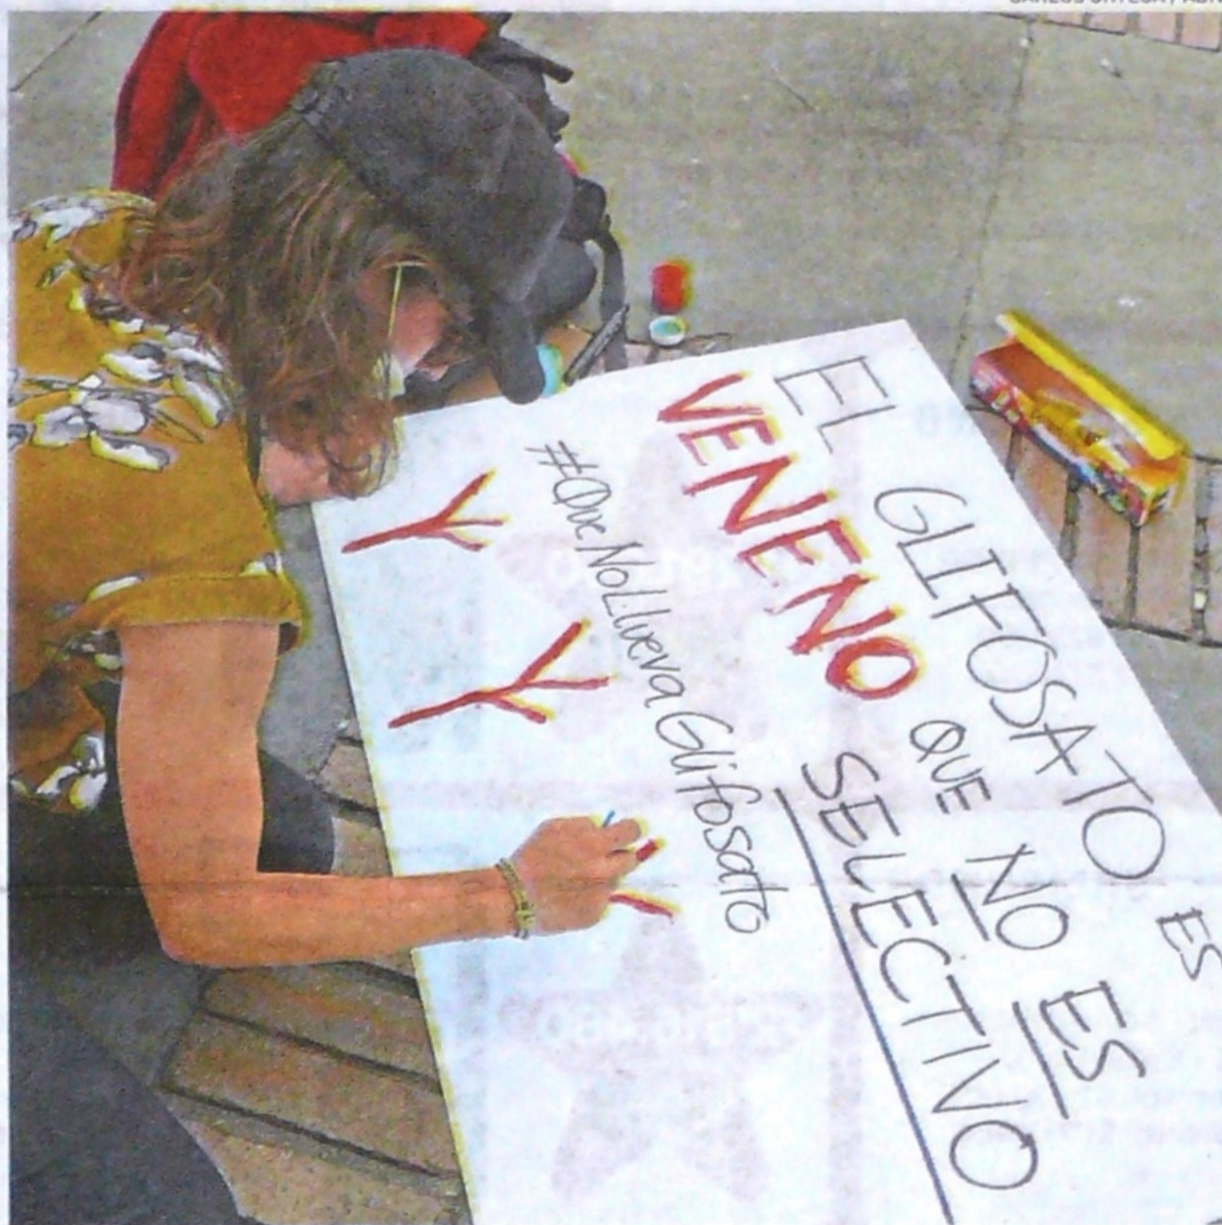 EL GLIFOSATO ES
VENENO QUE NO ES
SELECTIVO
#QueNoLlueva Glifosato